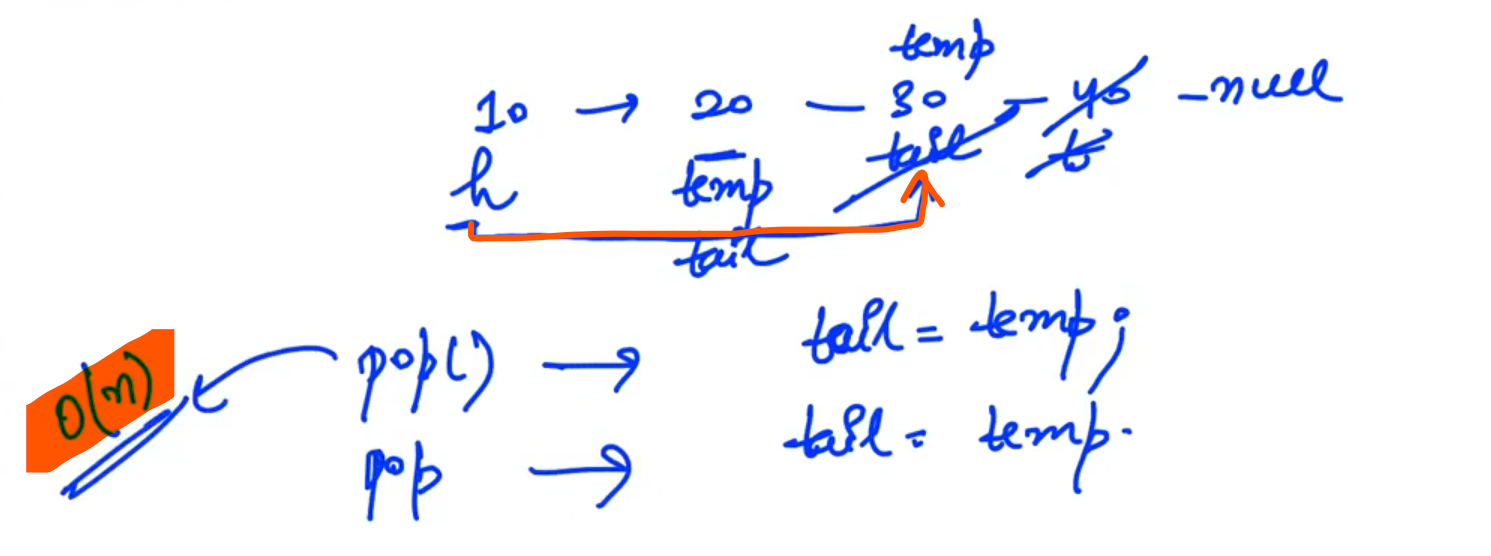 temp
10 → 20 — 30 — 40 — null
h temp tail t
tail
pop() → tail = temp;
O(n)
pop → tail = temp.